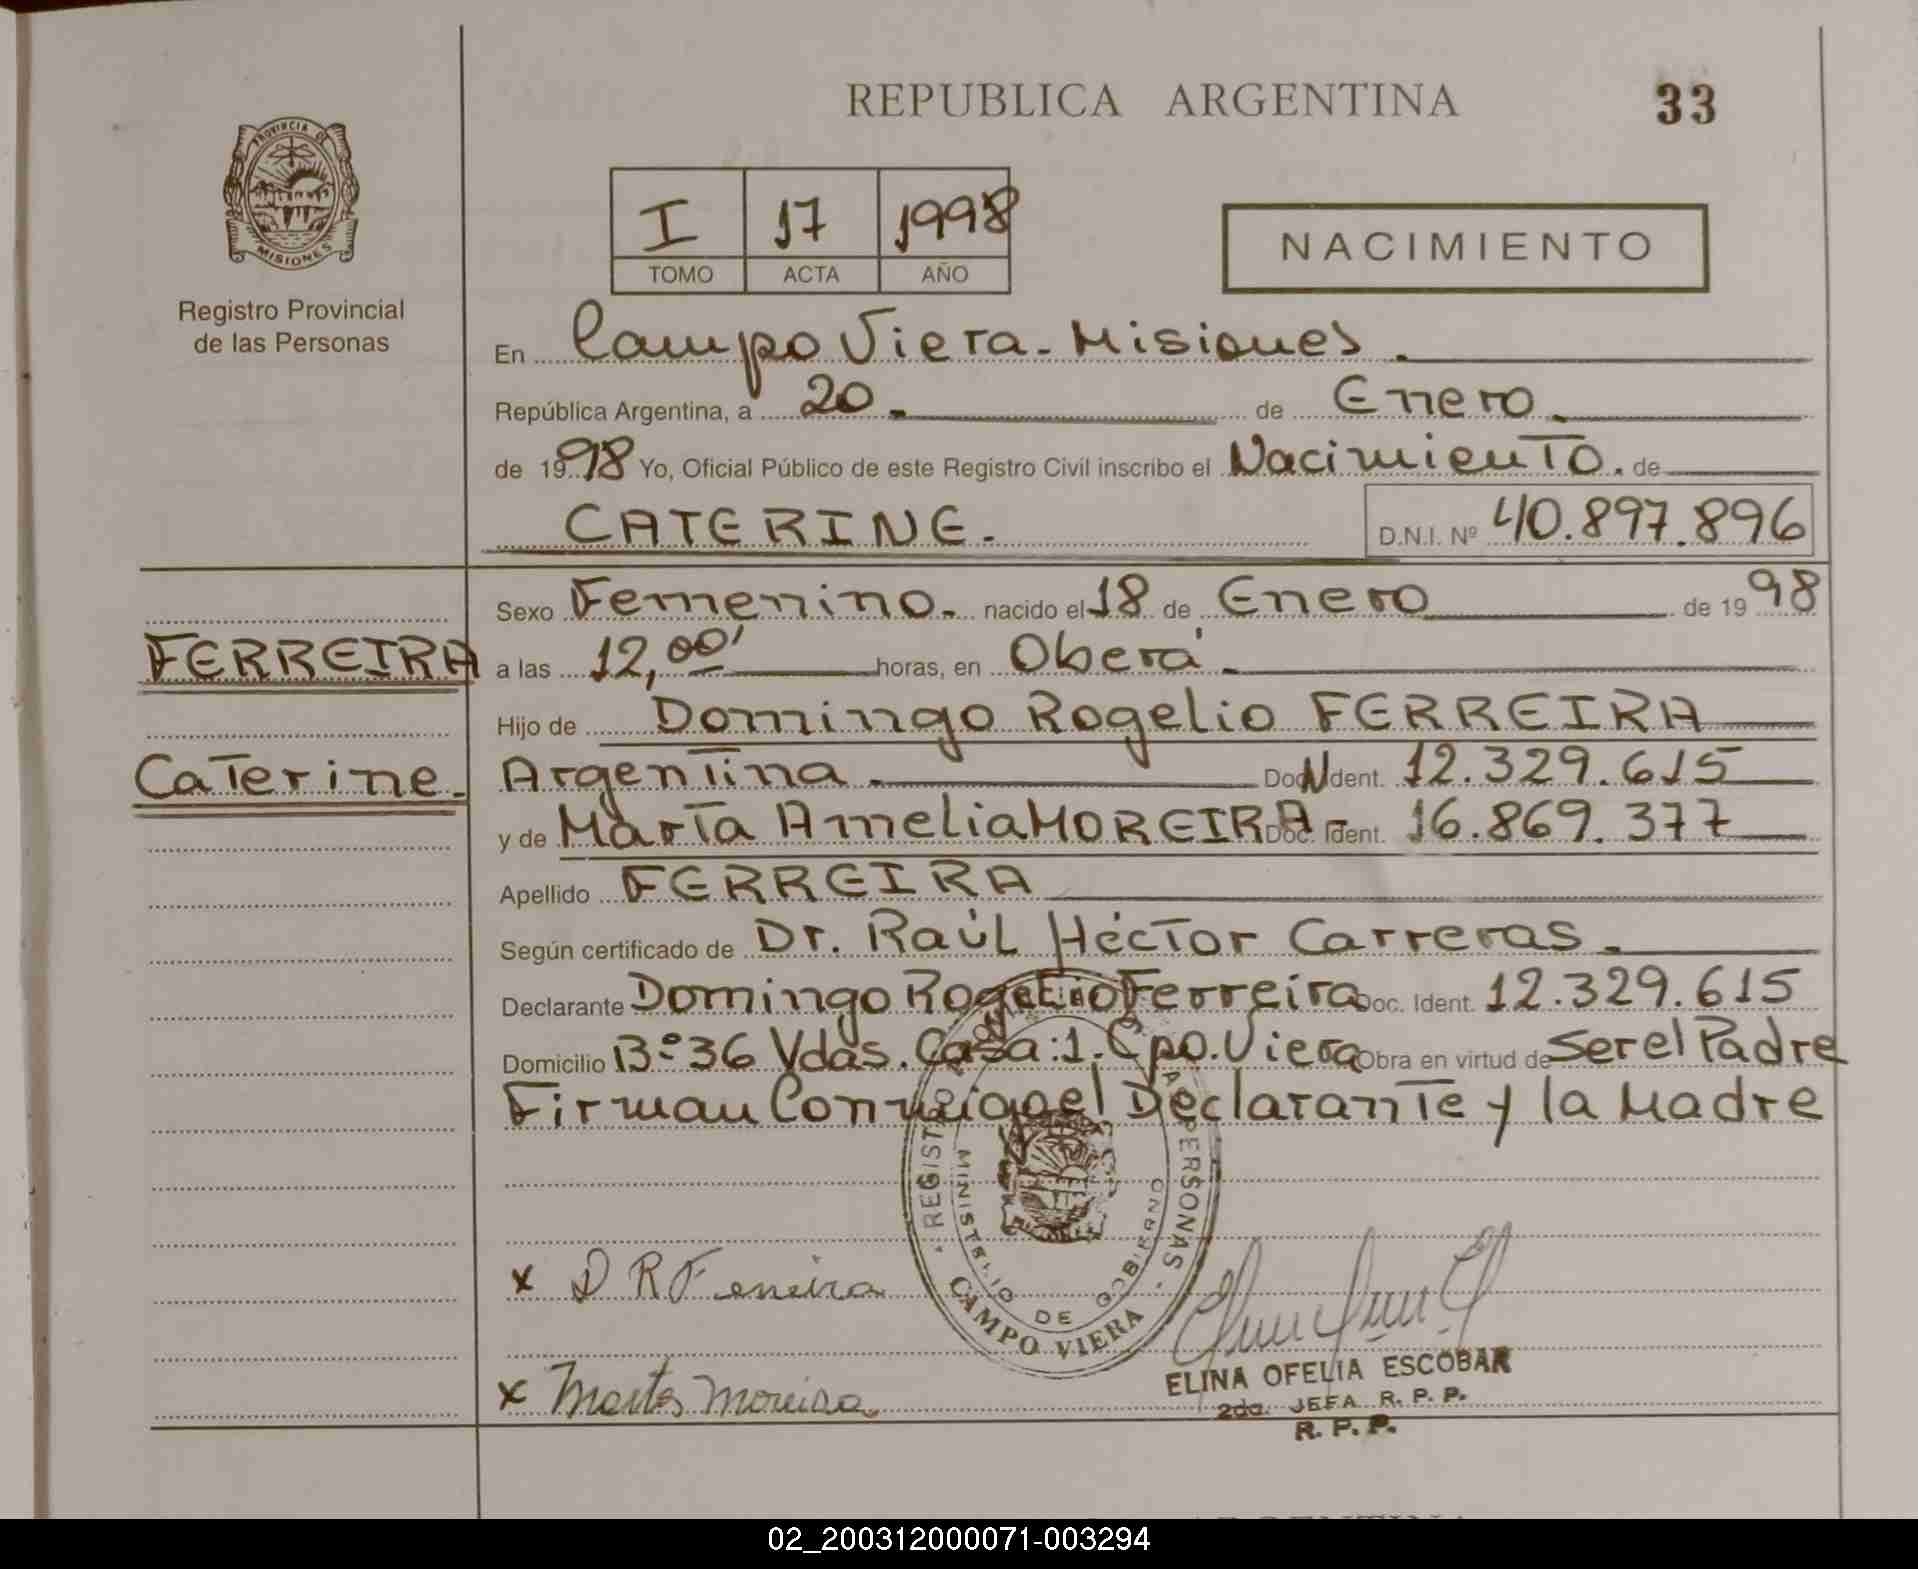 REPUBLICA ARGENTINA 33
PROVINCIA DE
MISIONES
Registro Provincial
de las Personas
I 17 1998
TOMO ACTA AÑO
NACIMIENTO
En Campo Viera - Misiones.
República Argentina, a 20 de Enero
de 1998 Yo, Oficial Público de este Registro Civil inscribo el Nacimiento. de
CATERINE. D.N.I. Nº 40.897.896
Sexo Femenino. nacido el 18 de Enero de 1998
FERREIRA a las 12,00' horas, en Oberá
Hijo de Domingo Rogelio FERREIRA
Caterine. Argentina. Doc. Ident. 12.329.615
y de Marta Amelia MOREIRA- Doc. Ident. 16.869.377
Apellido FERREIRA
Según certificado de Dr. Raúl Héctor Carreras.
Declarante Domingo Rogelio Ferreira Doc. Ident. 12.329.615
Domicilio Bº 36 Vdas. Casa: 1. Cpo. Viera Obra en virtud de Ser el Padre
Firman Conmigo el Declarante y la Madre
REGISTRO PERSONAS
MINISTERIO DE GOBIERNO
CAMPO VIERA
x D R Ferreira
x Marta Moreira
ELINA OFELIA ESCOBAR
2da. JEFA R. P. P.
R. P. P.
02_200312000071-003294